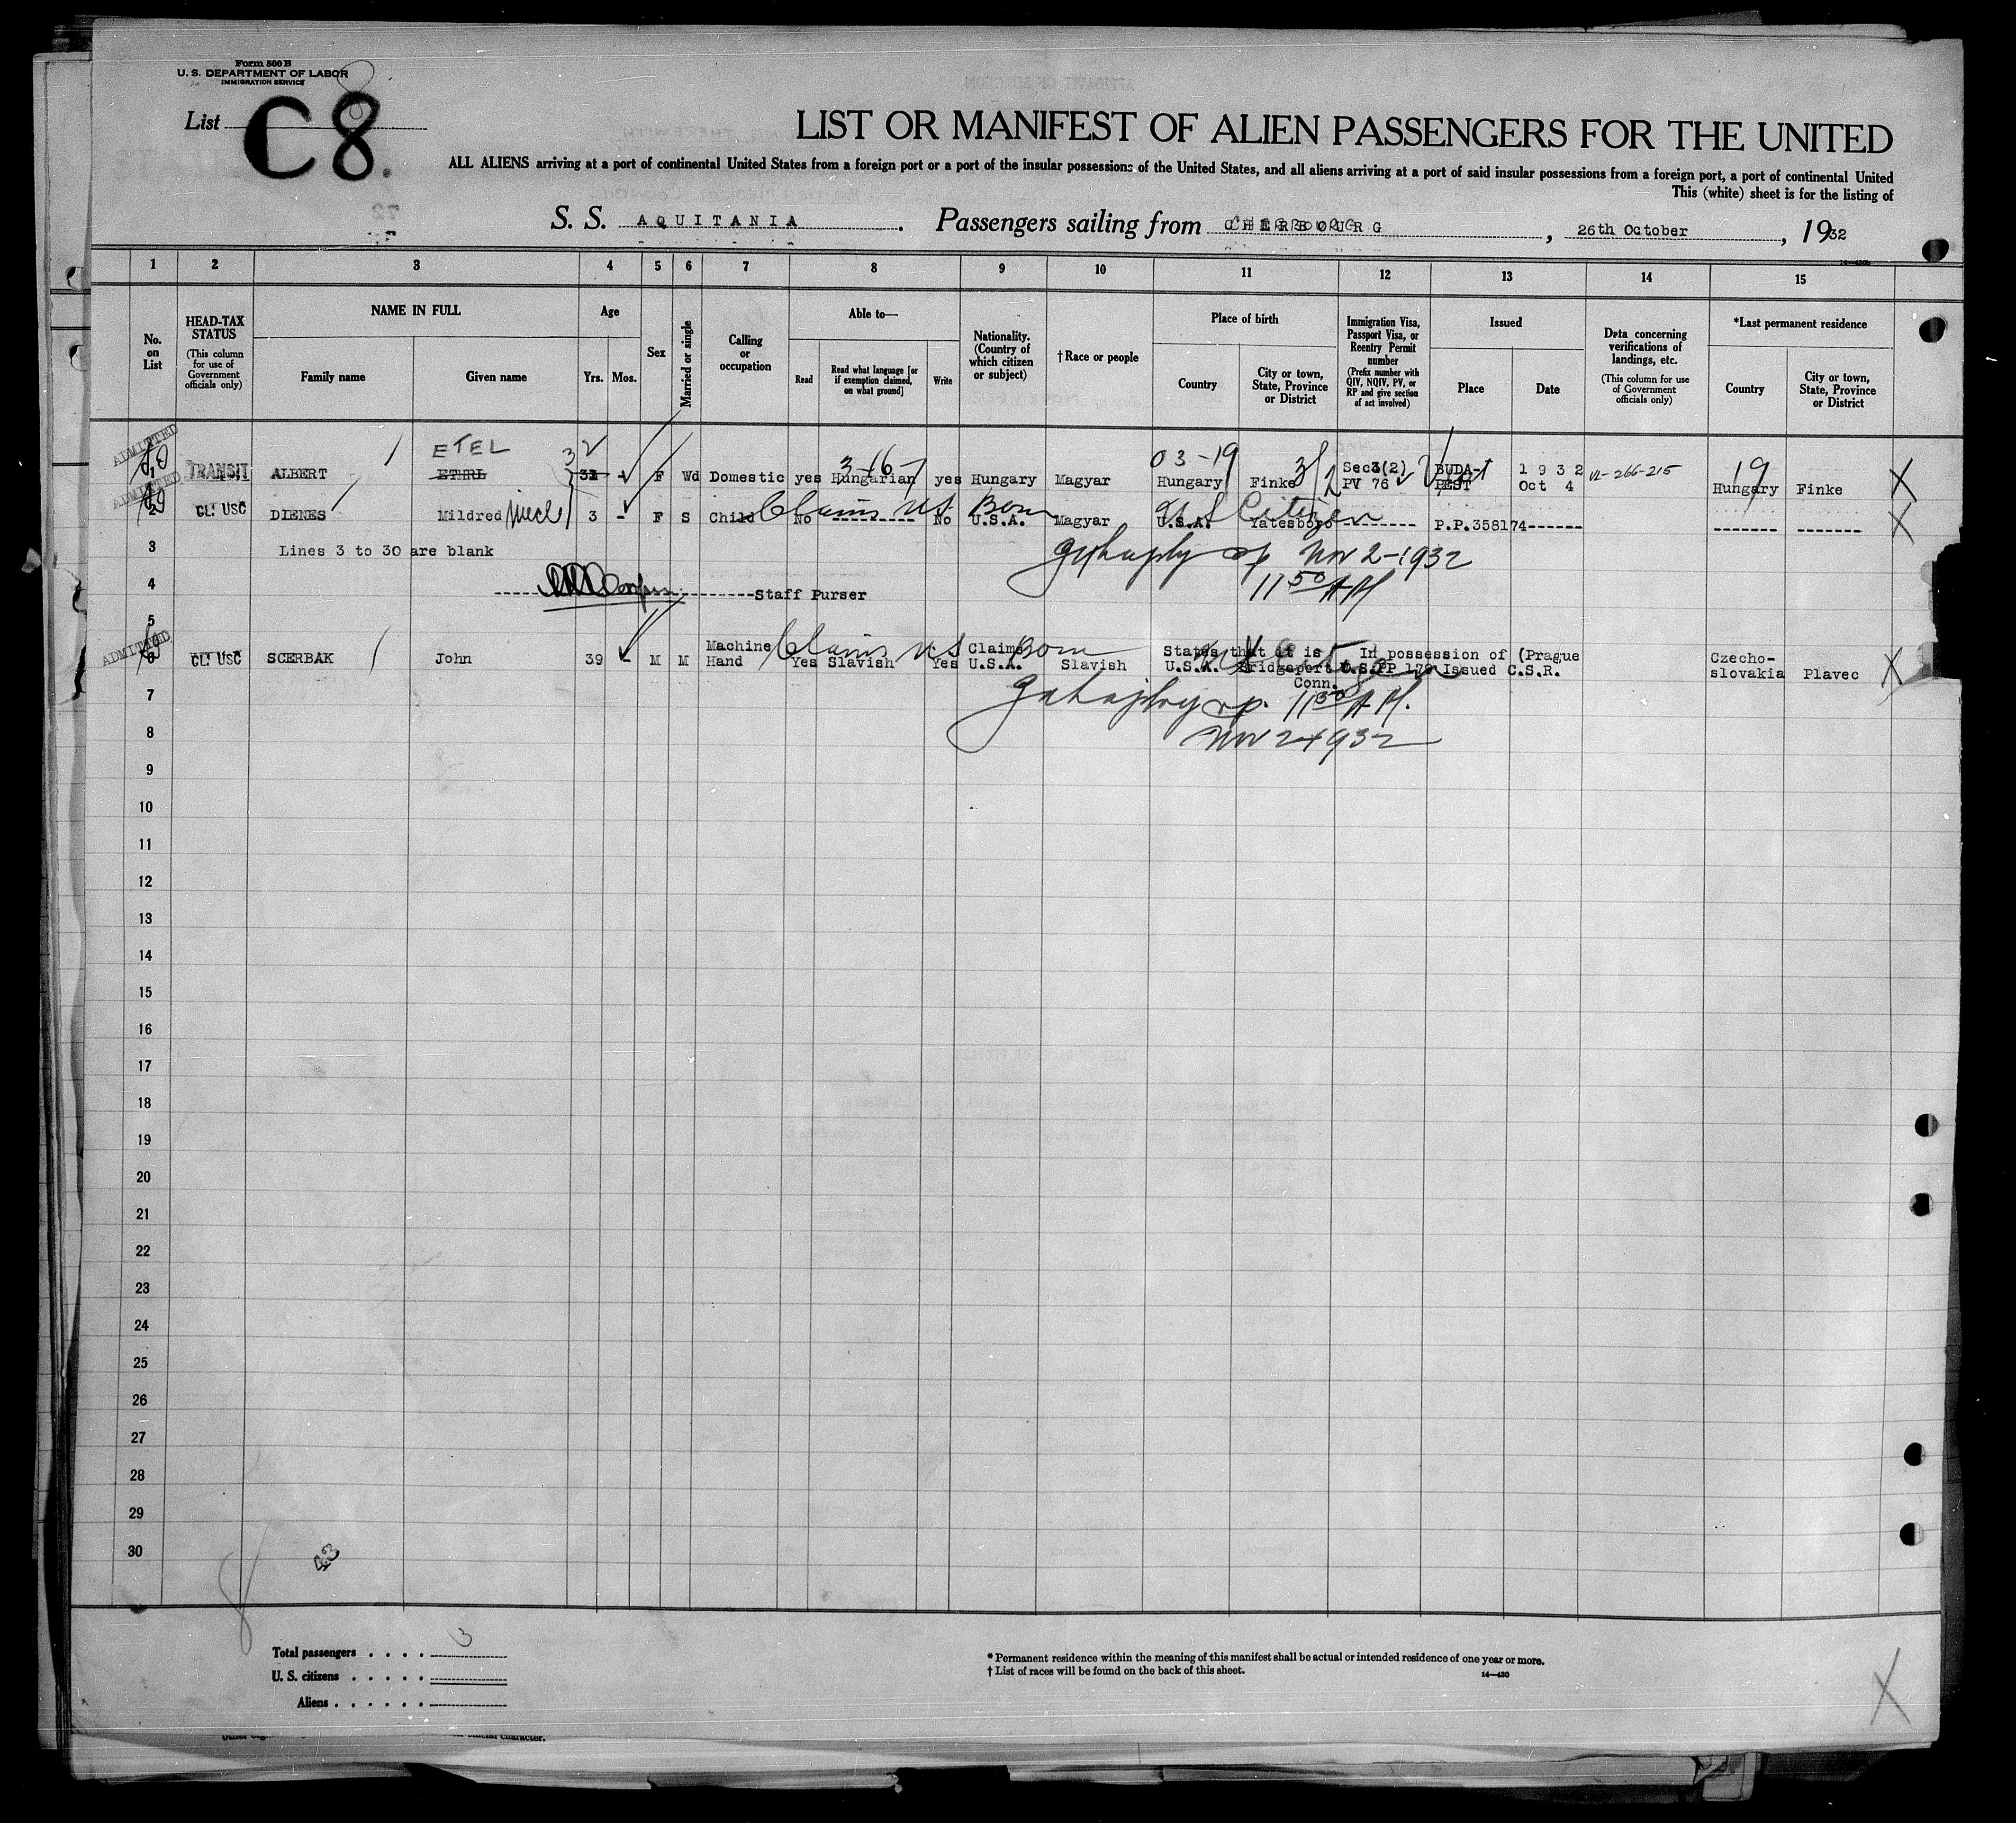 Form 500 B
U. S. DEPARTMENT OF LABOR
IMMIGRATION SERVICE
List C8.
LIST OR MANIFEST OF ALIEN PASSENGERS FOR THE UNITED
ALL ALIENS arriving at a port of continental United States from a foreign port or a port of the insular possessions of the United States, and all aliens arriving at a port of said insular possessions from a foreign port, a port of continental United
This (white) sheet is for the listing of
S. S. AQUITANIA. Passengers sailing from CHERBOURG, 26th October, 1932
1 2 3 4 5 6 7 8 9 10 11 12 13 14 15
No. on List
HEAD-TAX STATUS (This column for use of Government officials only)
NAME IN FULL
Family name
Given name
Age
Yrs. Mos.
Sex
Married or single
Calling or occupation
Able to—
Read
Read what language [or if exemption claimed, on what ground]
Write
Nationality. (Country of which citizen or subject)
†Race or people
Place of birth
Country
City or town, State, Province or District
Immigration Visa, Passport Visa, or Reentry Permit number (Prefix number with QIV, NQIV, PV, or RP and give section of act involved)
Issued
Place
Date
Data concerning verifications of landings, etc. (This column for use of Government officials only)
*Last permanent residence
Country
City or town, State, Province or District
ETEL 32 3-16- 03-19 3/2 19
ADMITTED 1 TRANSIT ALBERT ETHRL 31 F Wd Domestic yes Hungarian yes Hungary Magyar Hungary Finke Sec3(2) PV 76 BUDA-PEST 1932 Oct 4 VL-266-215 Hungary Finke X
ADMITTED 2 CL: USC DIENES Mildred niece 3 - F S Child No ---------- No U.S.A. Magyar U.S.A. Yatesboro -------- P.P.358174------ ------- ------- X
Claims US Born US Citizen
3 Lines 3 to 30 are blank
Nov 2-1932
4 Staff Purser
11 50 AM
5
ADMITTED 6 CL: USC SCERBAK John 39 - M M Machine Hand Yes Slavish Yes Claims U.S.A. Slavish States that it is In possession of (Prague
U.S.A. Bridgeport U.S.PP 179 Issued C.S.R. Czecho-slovakia Plavec X
Conn.
Claims US Born
7 11 50 AM.
8 Nov 2-1932
9
10
11
12
13
14
15
16
17
18
19
20
21
22
23
24
25
26
27
28
29
30
43
Total passengers . . . . 3
U. S. citizens . . . . .
Aliens . . . . . .
*Permanent residence within the meaning of this manifest shall be actual or intended residence of one year or more.
†List of races will be found on the back of this sheet.
14—430
X